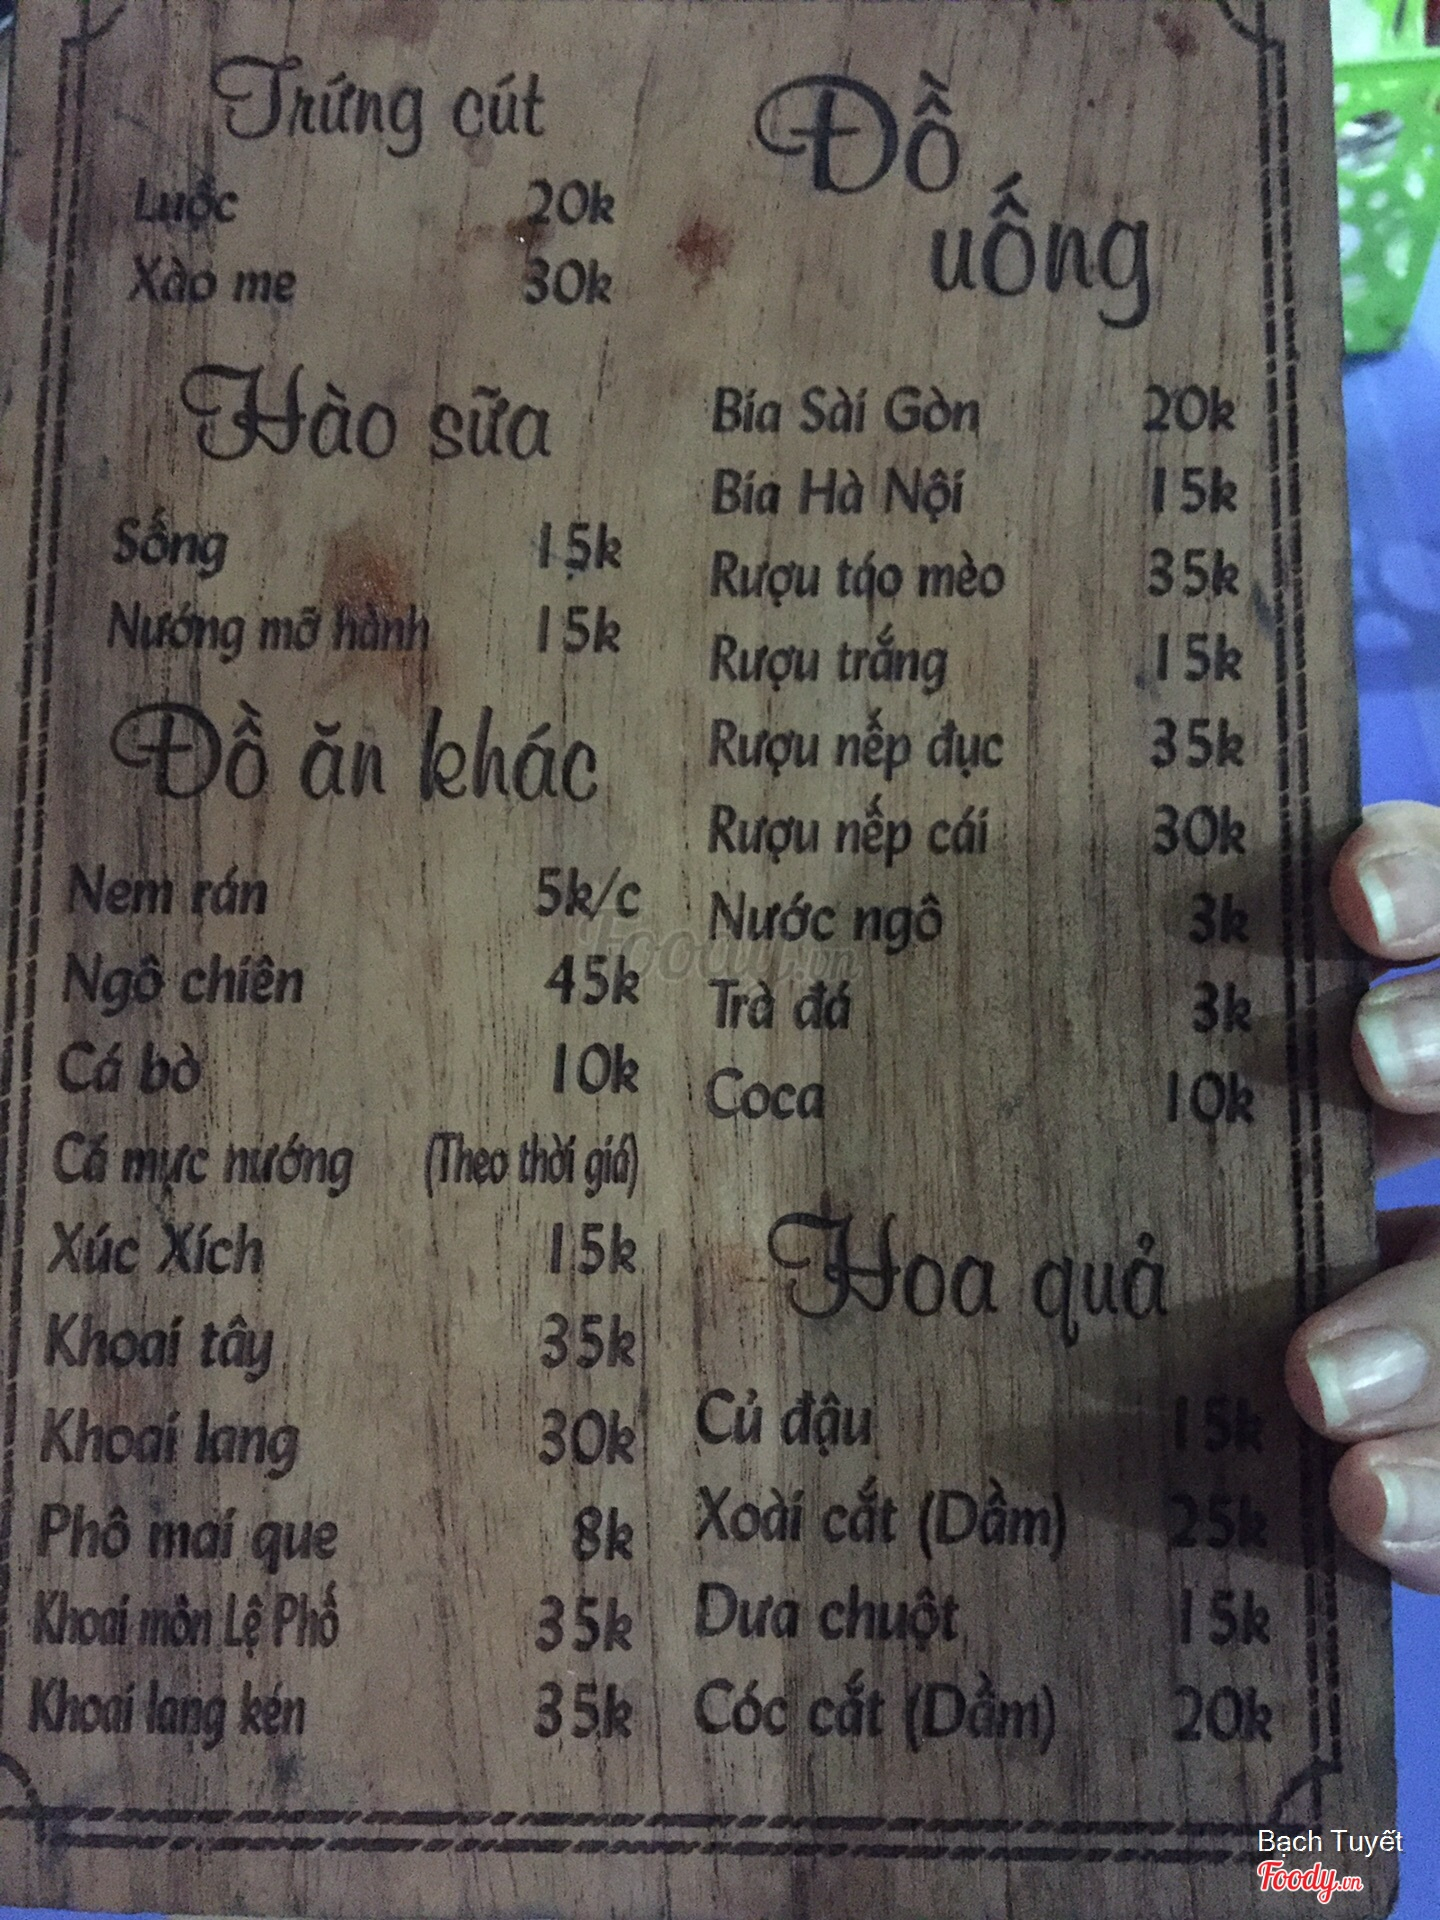 Trứng cút
Luộc 20k
Xào me 30k
Hào sữa
Sống 15k
Nướng mỡ hành 15k
Đồ ăn khác
Nem rán 5k/c
Ngô chiên 45k
Cá bò 10k
Cá mực nướng (Theo thời giá)
Xúc Xích 15k
Khoai tây 35k
Khoai lang 30k
Phô mai que 8k
Khoai môn Lệ Phố 35k
Khoai lang kén 35k
Đồ
uống
Bia Sài Gòn 20k
Bia Hà Nội 15k
Rượu táo mèo 35k
Rượu trắng 15k
Rượu nếp đục 35k
Rượu nếp cái 30k
Nước ngô 3k
Trà đá 3k
Coca 10k
Hoa quả
Củ đậu 15k
Xoài cắt (Dầm) 25k
Dưa chuột 15k
Cóc cắt (Dầm) 20k
Foody.vn
Bạch Tuyết
Foody.vn